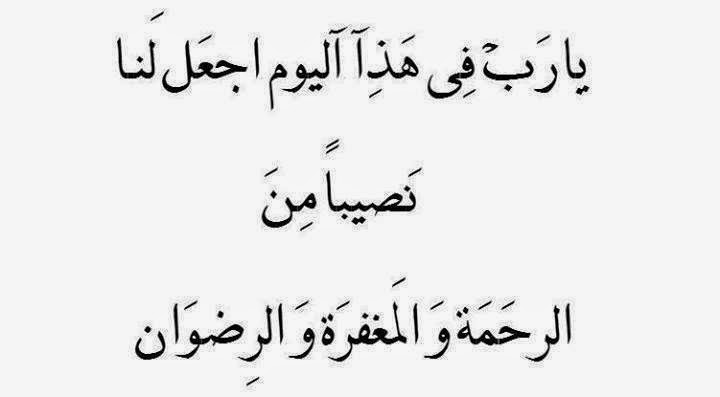 يا رَبْ فِي هَذِآ آليوم اجعَل لَنا
نَصيباً مِنَ
الرحَمَة وَ المَغفرَة وَ الرِضوَان